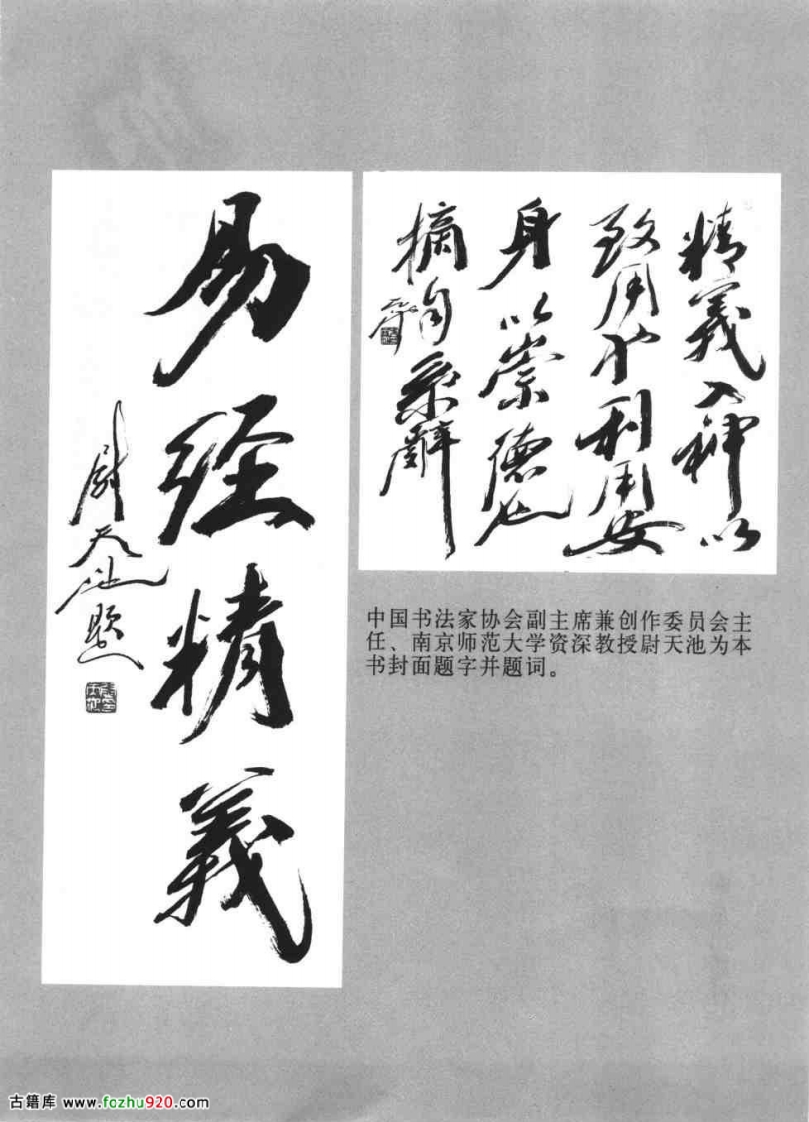 易经精義
尉天池題
精義入神以
致用也利用安
身以崇德也
摘自系辭
天池
中国书法家协会副主席兼创作委员会主
任、南京师范大学资深教授尉天池为本
书封面题字并题词。
古籍库 www.fozhu920.com